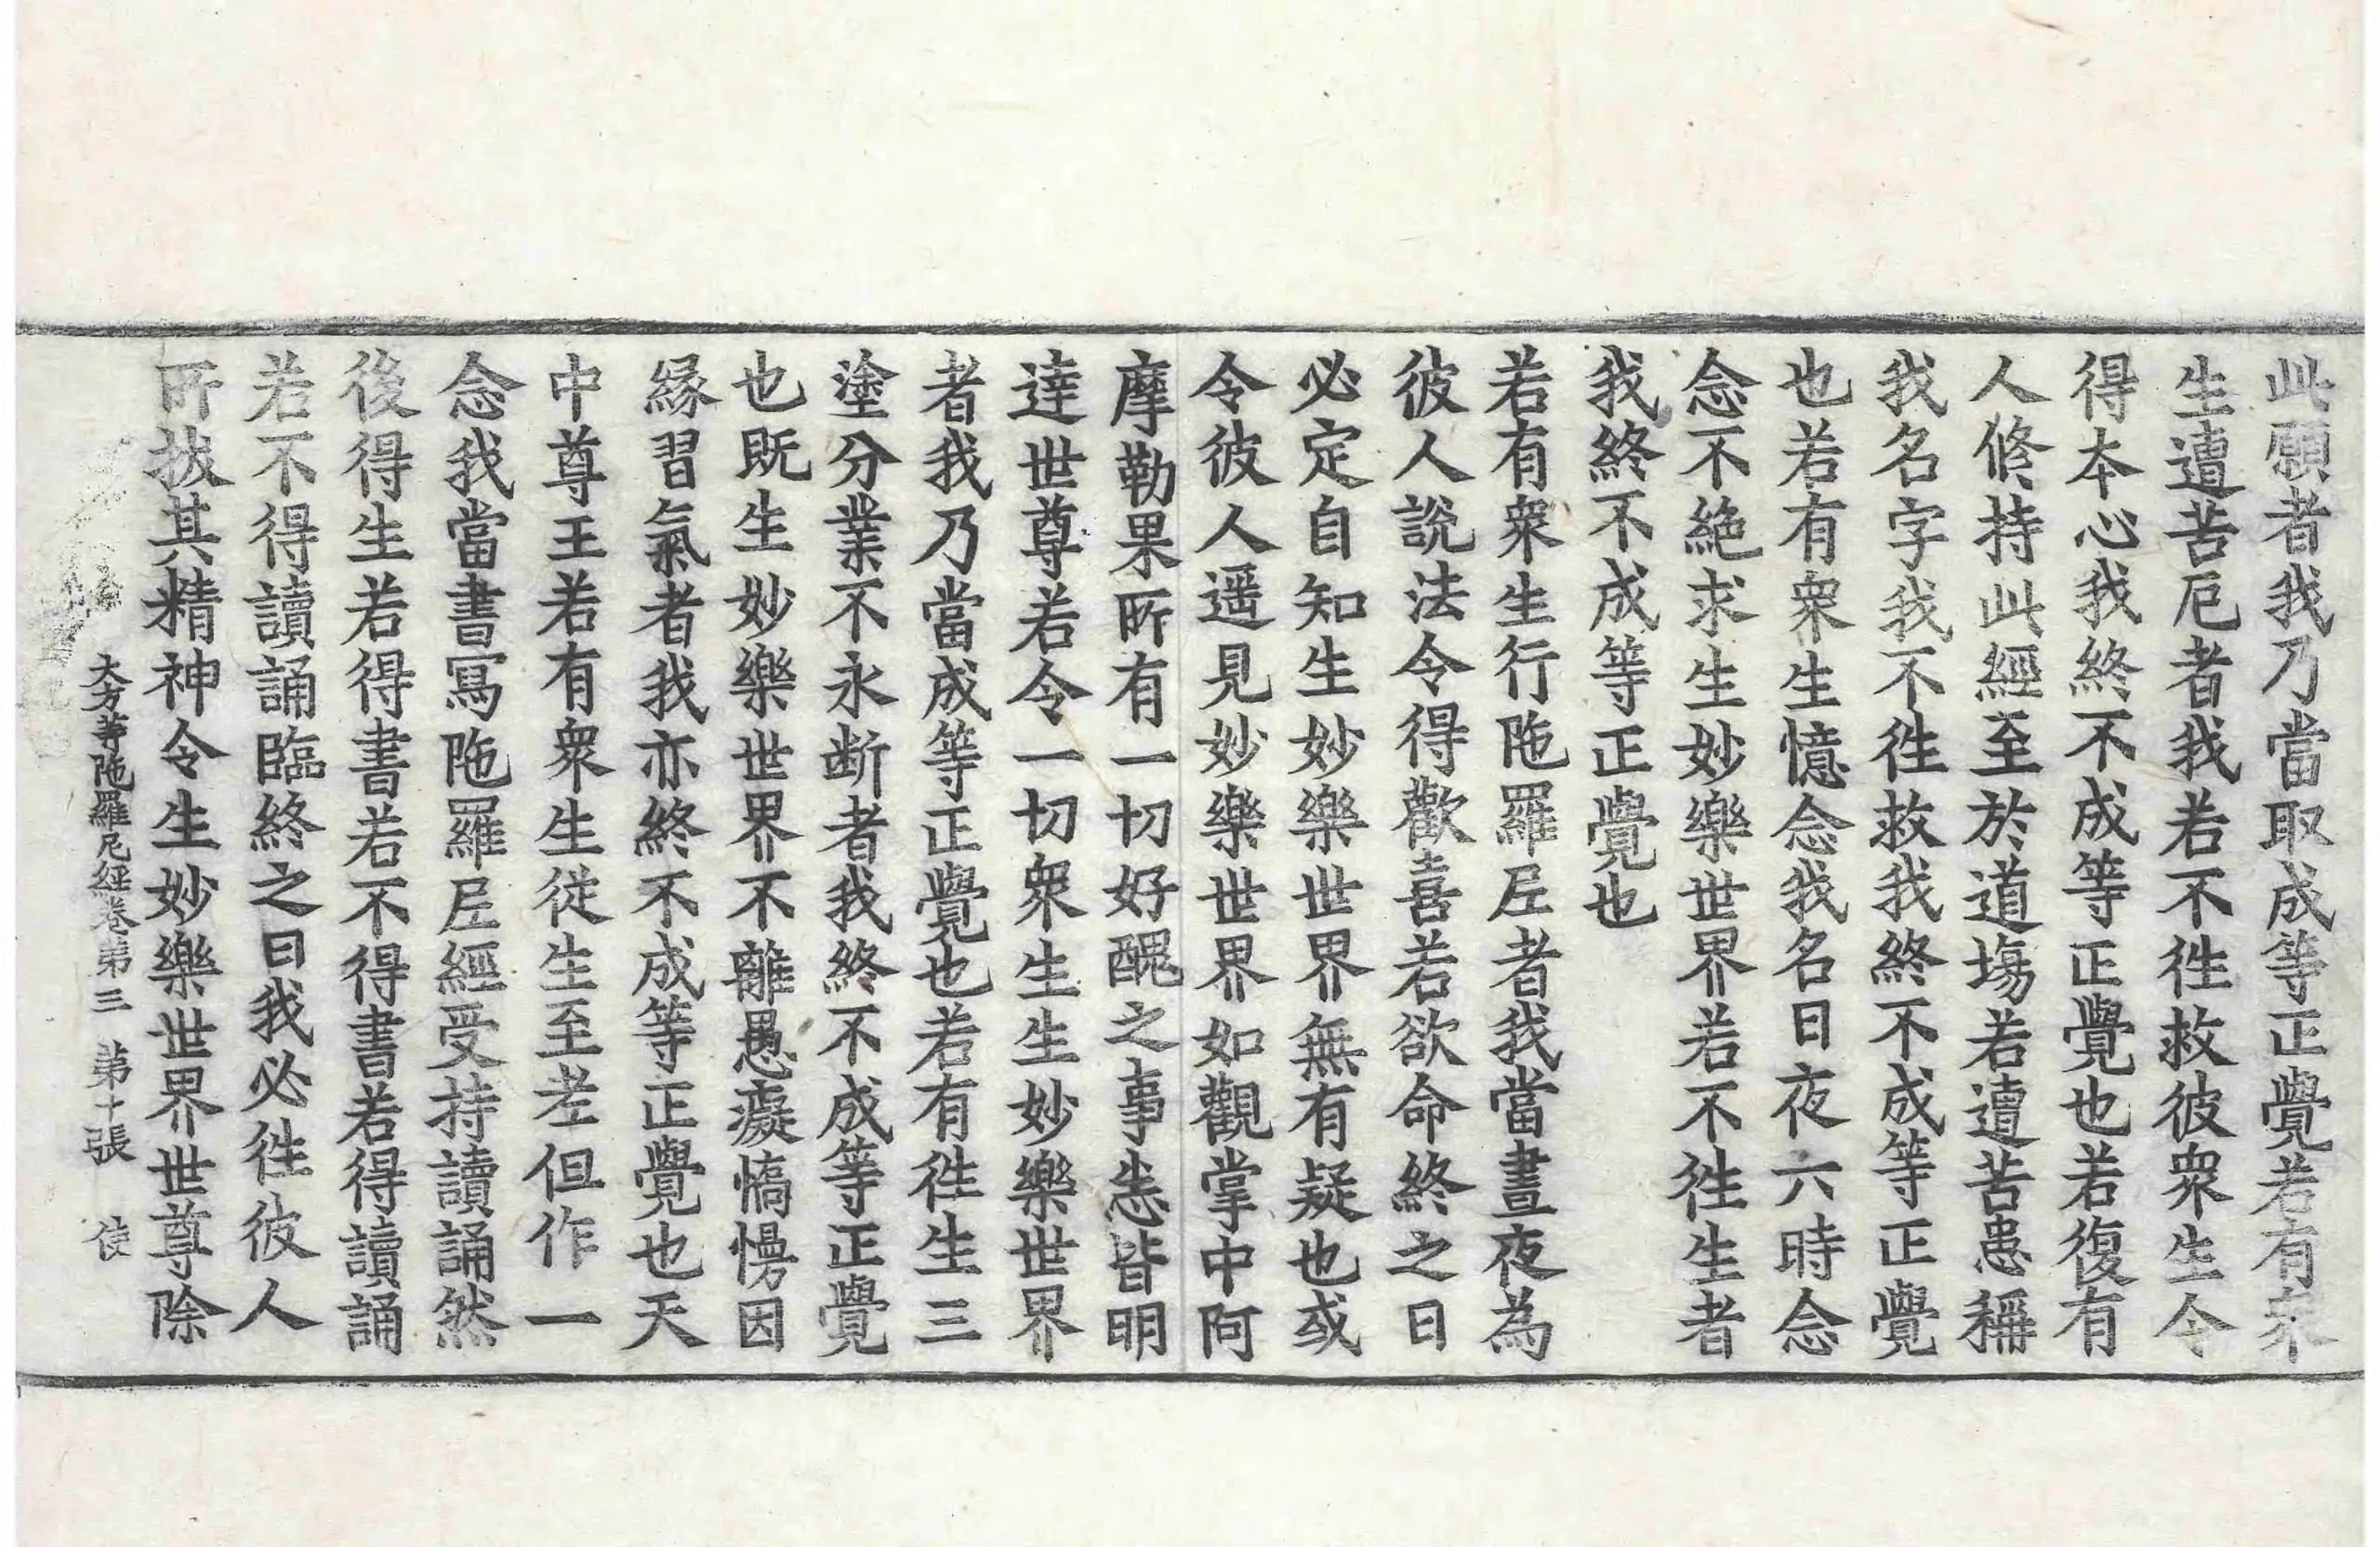 此願者我乃當取成等正覺若有衆
生遭苦厄者我若不徃救彼衆生令
得本心我終不成等正覺也若復有
人修持此經至於道塲若遭苦患稱
我名字我不徃救我終不成等正覺
也若有衆生憶念我名日夜六時念
念不絶求生妙樂世界若不徃生者
我終不成等正覺也
若有衆生行陁羅𡰱者我當晝夜為
彼人說法令得歡喜若欲命終之日
必定自知生妙樂世界無有疑也或
令彼人遥見妙樂世界如觀掌中阿
摩勒果所有一切好醜之事悉皆明
達世尊若令一切衆生生妙樂世界
者我乃當成等正覺也若有徃生三
塗分業不永断者我終不成等正覺
也既生妙樂世界不離愚癡憍慢因
緣習氣者我亦終不成等正覺也天
中尊王若有衆生從生至老但作一
念我當書寫陁羅𡰱經受持讀誦然
後得生若得書若不得書若得讀誦
若不得讀誦臨終之日我必徃彼人
所拔其精神令生妙樂世界世尊除
大方等陁羅尼經卷第三 第十張 使